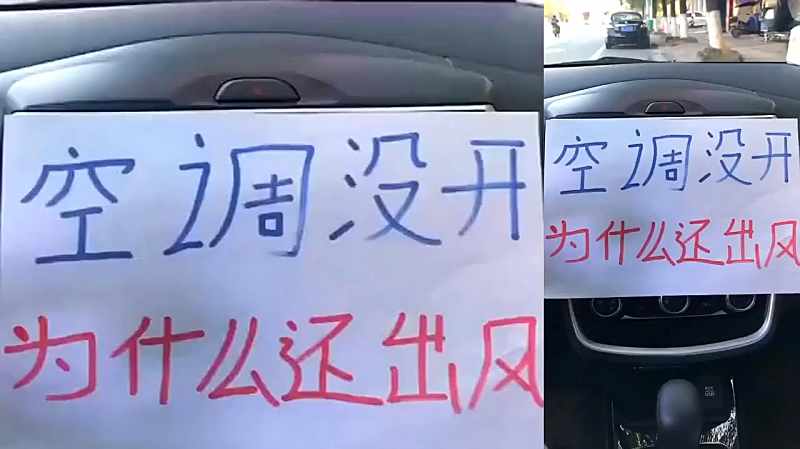 空调没开
为什么还出风
空调没开
为什么还出风